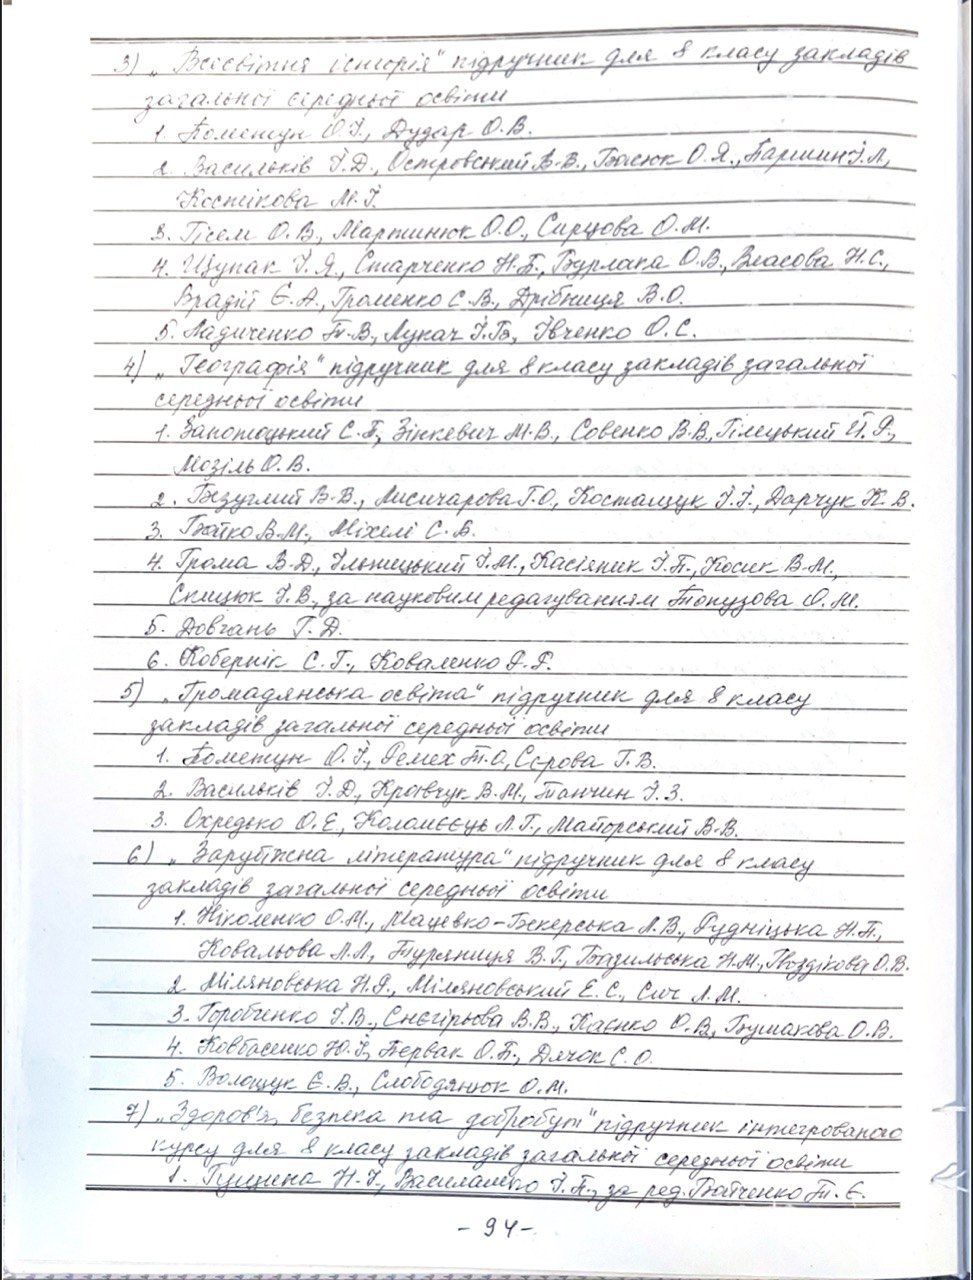 3) „Всесвітня історія" підручник для 8 класу закладів
загальної середньої освіти
1. Пометун О.І., Дудар О.В.
2. Васильків І.Д., Островський В.В., Басюк О.Я., Паршин І.Л,
Костікова М.І.
3. Гісем О.В., Мартинюк О.О., Сирцова О.М.
4. Щупак І.Я., Старченко Н.П., Бурлака О.В., Власова Н.С.,
Врадій Є.А., Громенко С.В., Дрібниця В.О.
5. Ладиченко Т.В., Лукач І.Б., Івченко О.С.
4) „Географія" підручник для 8 класу закладів загальної
середньої освіти
1. Запотоцький С.П., Зінкевич М.В., Совенко В.В., Гілецький Й.Р.,
Мозіль О.В.
2. Безуглий В.В., Лисичарова Г.О., Костащук І.І., Дарчук К.В.
3. Бойко В.М., Міхелі С.В.
4. Грома В.Д., Ільницький І.М., Касіяник І.П., Косик В.М.,
Скицюк І.В., за науковим редагуванням Топузова О.М.
5. Довгань Г.Д.
6. Кобернік С.Г., Коваленко Р.Р.
5) „Громадянська освіта" підручник для 8 класу
закладів загальної середньої освіти
1. Пометун О.І, Ремех Т.О, Сєрова Г.В.
2. Васильків І.Д, Кравчук В.М., Панчин І.З.
3. Охредько О.Е, Коломєєць Л.Г., Майорський В.В.
6) „Зарубіжна література" підручник для 8 класу
закладів загальної середньої освіти
1. Ніколенко О.М., Мацевко-Бекерська Л.В., Рудніцька Н.П.,
Ковальова Л.Л, Туряниця В.Г., Базильська Н.М., Гвоздікова О.В.
2. Міляновська Н.Р., Міляновський Е.С., Сич Л.М.
3. Горобченко І.В., Снєгірьова В.В., Каєнко О.В, Бушакова О.В.
4. Ковбасенко Ю.І, Первак О.П., Дячок С.О.
5. Волощук Є.В., Слободянюк О.М.
7) „Здоров'я, безпека та добробут" підручник інтегрованого
курсу для 8 класу закладів загальної середньої освіти
1. Гущина Н.І., Василашко І.П., за ред. Бойченко Т.Є.
- 94 -